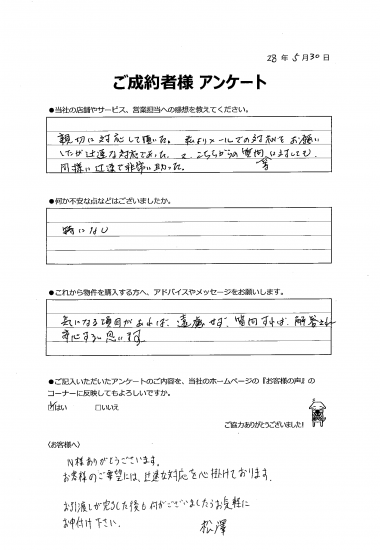 28年 5月30日
ご成約者様 アンケート
●当社の店舗やサービス、営業担当への感想を教えてください。
親切に対応して頂いた。私よりメールでの対応をお願い
したが迅速な対応であった。又、こちらからの質問等に対しても、
同様に迅速で非常に助った。
●何か不安な点などはございましたか。
特になし
●これから物件を購入する方へ、アドバイスやメッセージをお願いします。
気になる項目があれば、遠慮せず、質問すれば、解答され
安心すると思います。
●ご記入いただいたアンケートのご内容を、当社のホームページの『お客様の声』の
コーナーに反映してもよろしいですか。
☑はい □いいえ
ご協力ありがとうございました!
〈お客様へ〉
N様ありがとうございます。
お客様のご希望には、迅速な対応を心掛けております。
お引渡しが完了した後も何かございましたらお気軽に
お申付け下さい。
松澤